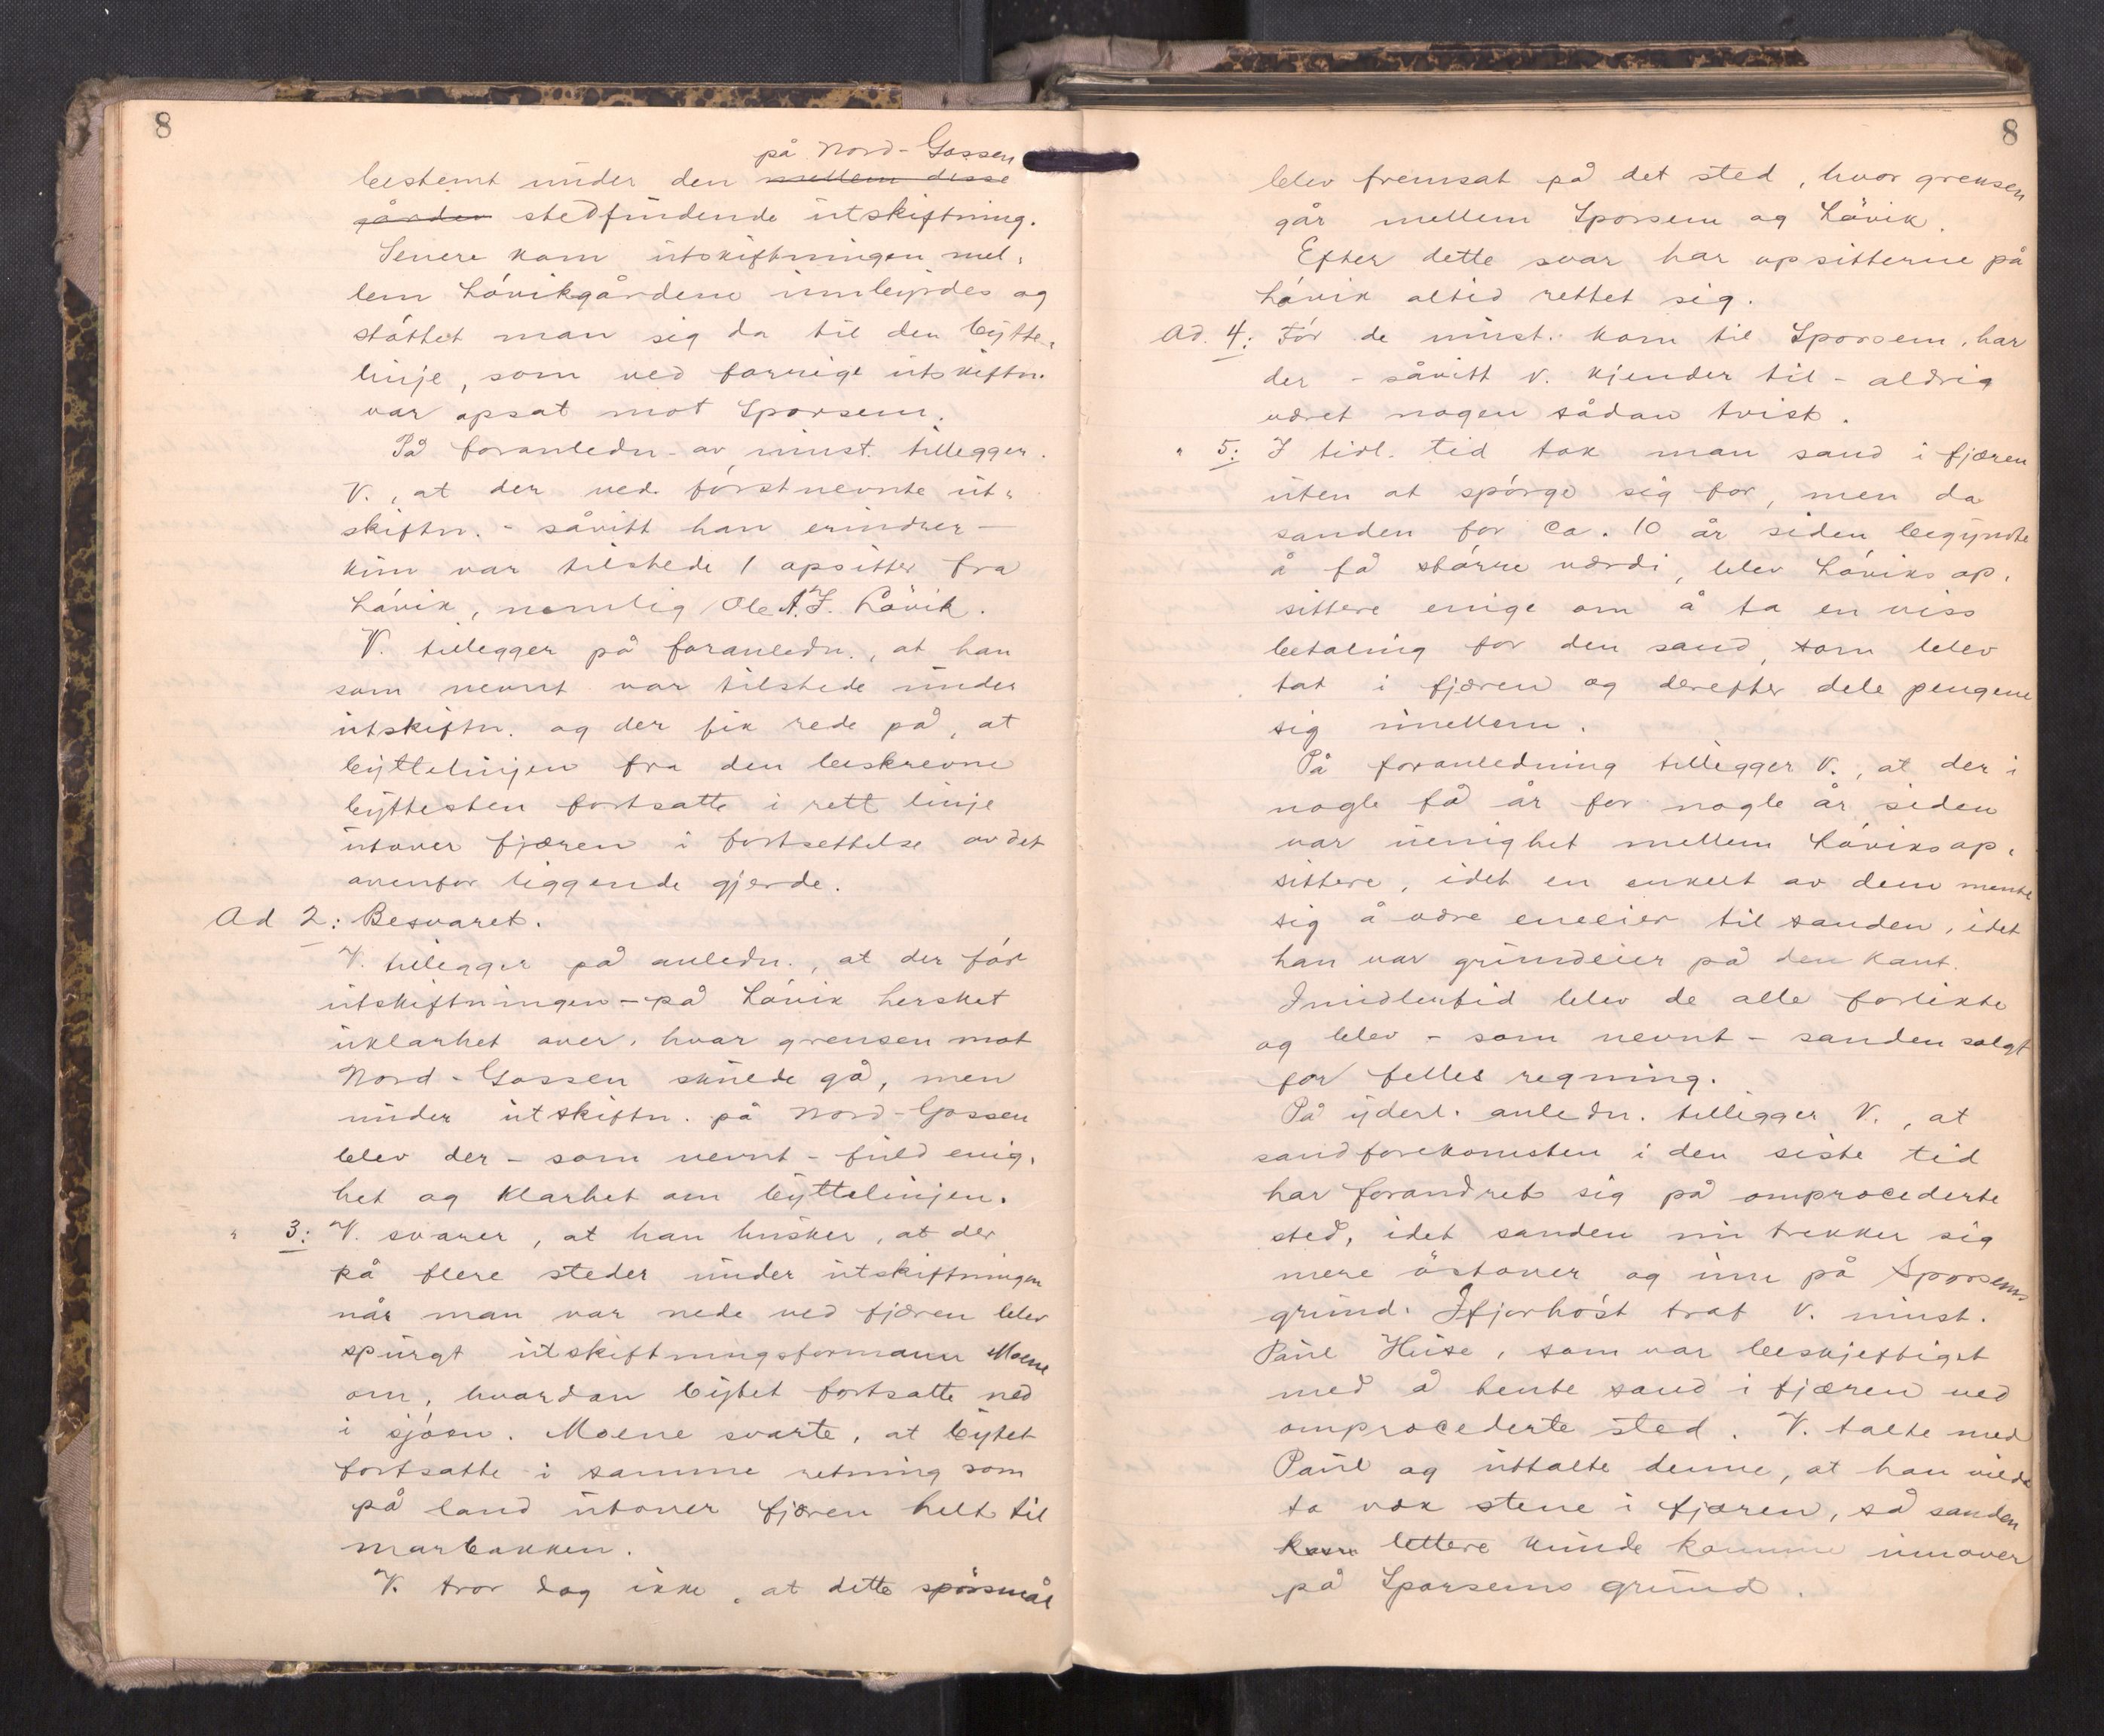 8
på Nord-Gossen
bestemt under den mellem disse
gården stedfindende utskiftning.
Senere kom utskiftningen mel-
lem Lövikgårdene innbyrdes og
støttet man sig da til den bytte-
linje, som ved forrige utskiftn.
var opsat mot Sporsem.
På foranledn. av minst. tillegger
V., at der ved førstnevnte ut-
skiftn. - såvitt han erindrer -
kun var tilstede 1 opsitter fra
Lövik, nemlig Ole A. J. Lövik.
V. tillegger på foranledn., at han
som nevnt var tilstede under
utskiftn. og der fik rede på, at
byttelinjen fra den beskrevne
byttesten fortsatte i rett linje
utover fjæren i fortsettelse av det
ovenfor liggende gjerde.
Ad 2: Besvaret.
V. tillegger på anledn., at der før
utskiftningen - på Lövik hersket
uklarhet over, hvor grensen mot
Nord-Gossen skulde gå, men
under utskiftn. på Nord-Gossen
blev der - som nevnt - fuld enig-
het og klarhet om byttelinjen.
" 3: V. svarer, at han husker, at der
på flere steder under utskiftningen
når man var nede ved fjæren blev
spurgt utskiftningsformann Moene
om, hvordan bytet fortsatte ned
i sjøen. Moene svarte, at bytet
fortsatte i samme retning som
på land utover fjæren helt til
marbakken.
V. tror dog ikke, at dette spørsmål
8
blev fremsat på det sted, hvor grensen
går mellem Sporsem og Lövik.
Efter dette svar har opsitterne på
Lövik altid rettet sig.
Ad. 4: Før de minst. kom til Sporsem, har
der - såvitt V. kjender til - aldrig
været nogen sådan tvist.
" 5: I tidl. tid tok man sand i fjæren
uten at spørge sig for, men da
sanden for ca. 10 år siden begynte
å få større værdi, blev Löviks op-
sittere enige om å ta en viss
betaling for den sand, som blev
tat i fjæren og derefter dele pengene
sig imellem.
På foranledning tillegger V., at der i
nogle få år for nogle år siden
var uenighet mellem Löviks op-
sittere, idet en enkelt av dem mente
sig å være eneeier til sanden, idet
han var grundeier på den kant.
Imidlertid blev de alle forlikte
og blev - som nevnt - sanden solgt
for felles regning.
På yderl. anledn. tillegger V., at
sandforekomsten i den siste tid
har forandret sig på omprocederte
sted, idet sanden nu trekker sig
mere östover og inn på Sporsems
grund. Ifjorhøst traf V. minst.
Paul Huse, som var beskjeftiget
med å hente sand i fjæren ved
omprocederte sted. V. talte med
Paul og uttalte denne, at han vilde
ta væk stene i fjæren, så sanden
kom lettere kunde komme innover
på Sporsems grund.